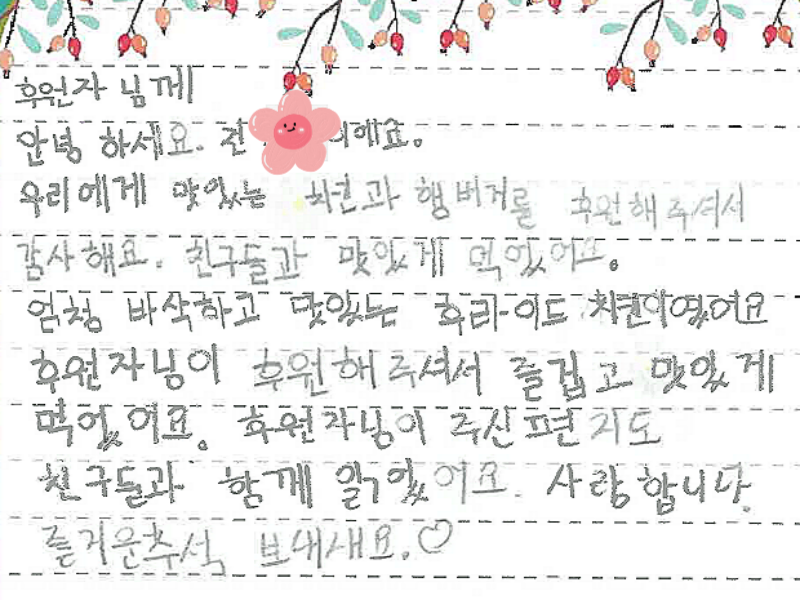 후원자님께
안녕 하세요. 전 이에요.
우리에게 맛있는 치킨과 햄버거를 후원해주셔서
감사해요. 친구들과 맛있게 먹었어요.
엄청 바삭하고 맛있는 후라이드 치킨이였어요
후원자님이 후원해주셔서 즐겁고 맛있게
먹었어요. 후원자님이 주신 편지도
친구들과 함께 읽었어요. 사랑합니다.
즐거운추석 보내세요.♡